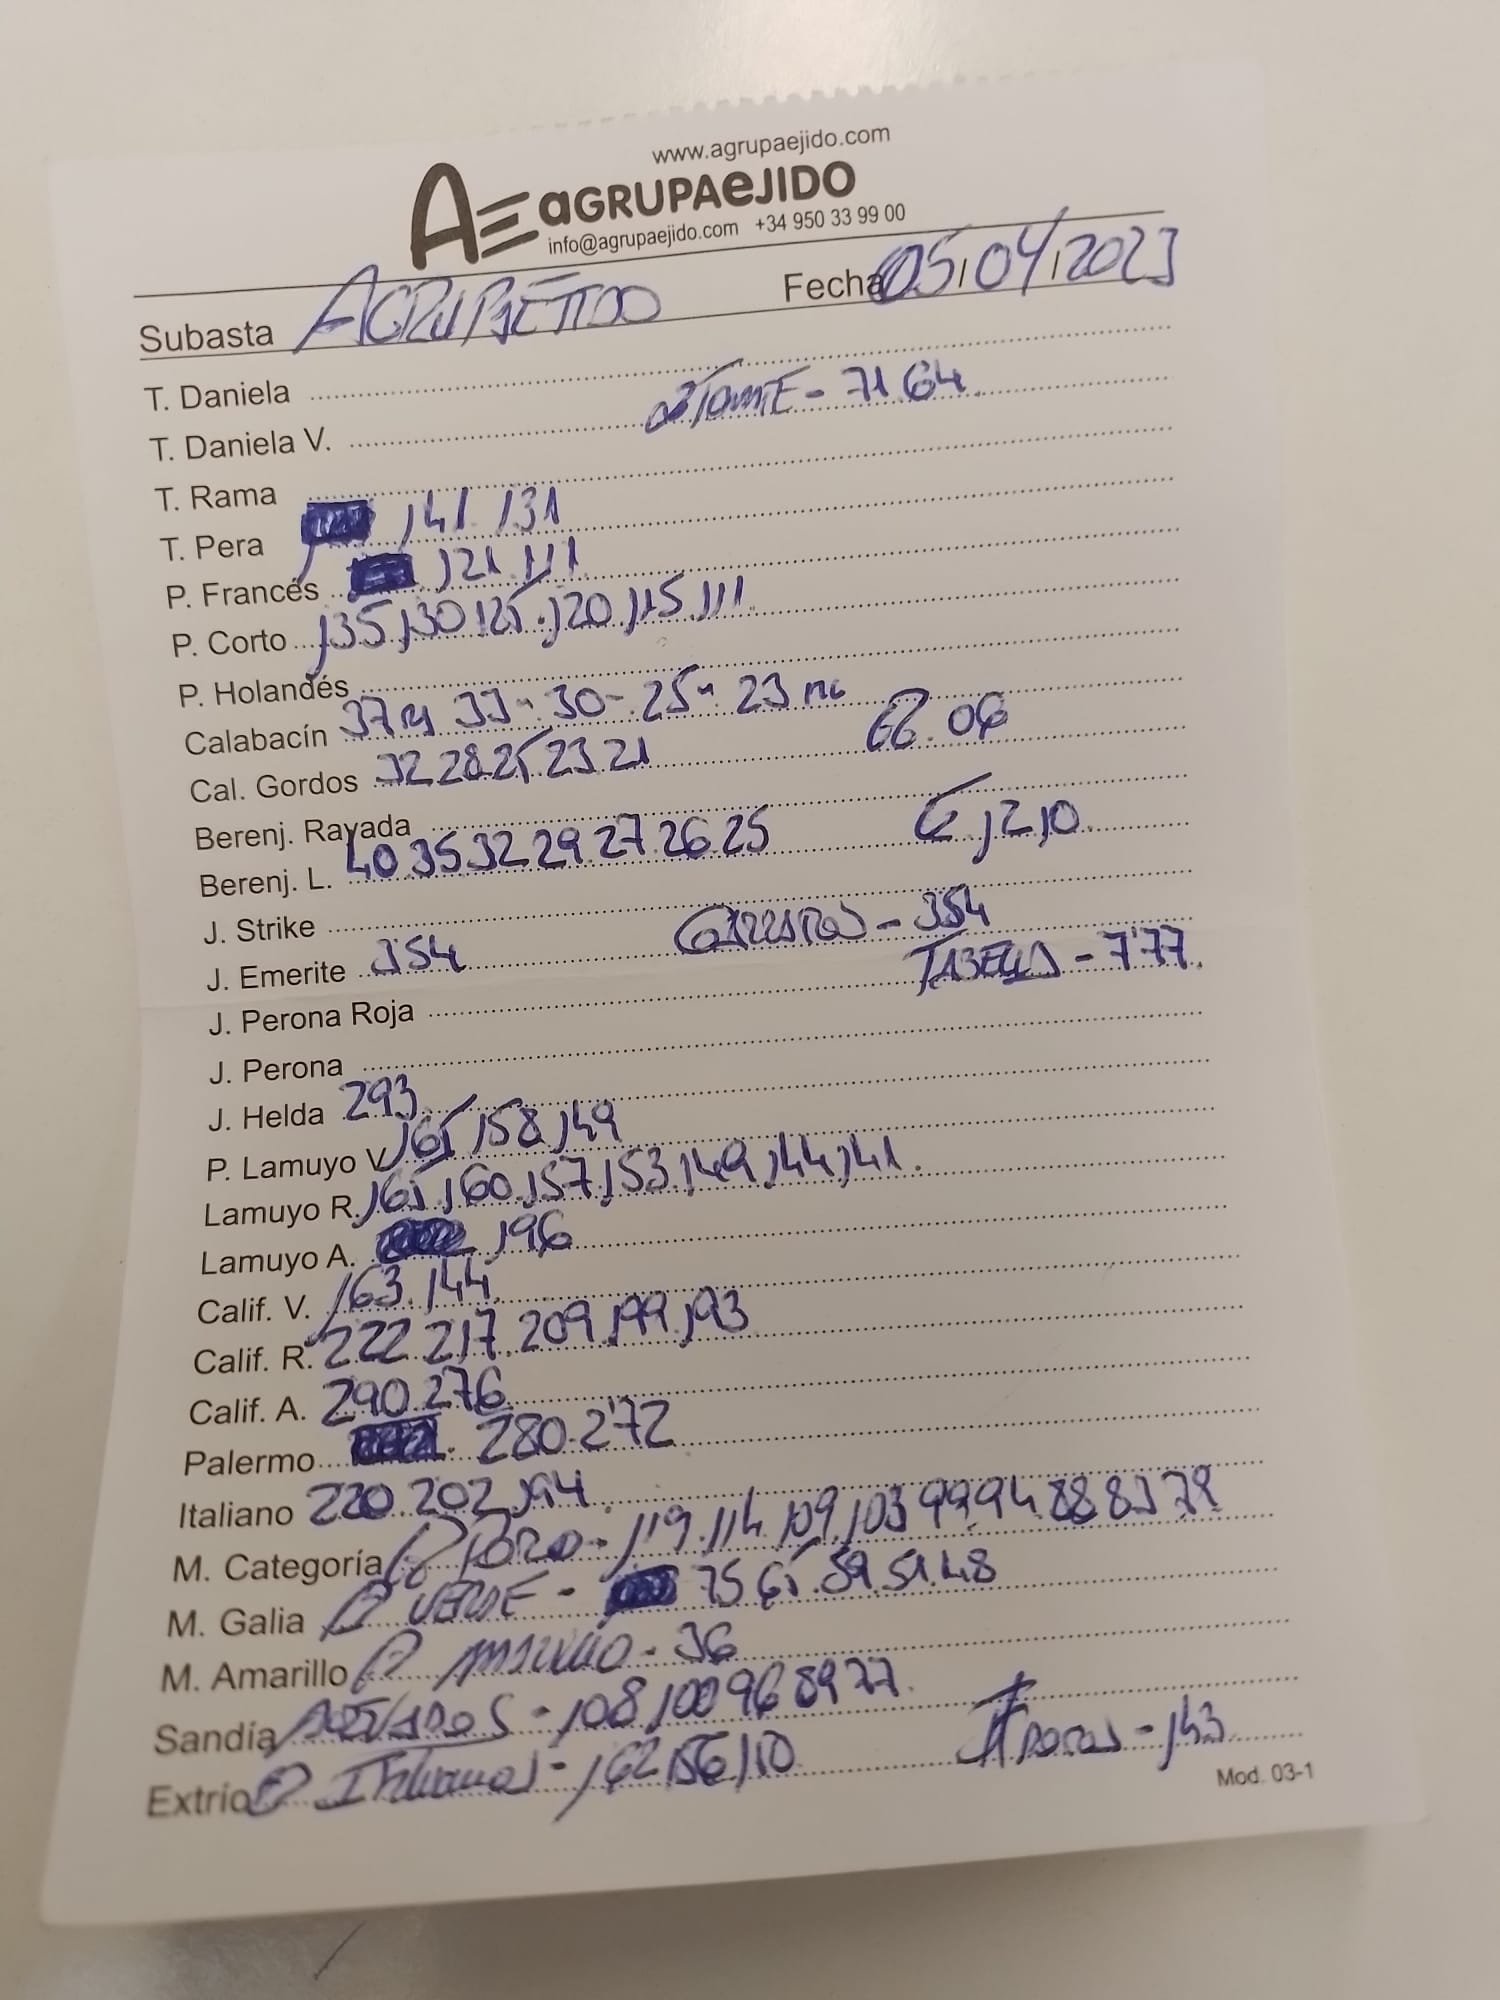 www.agrupaejido.com
AE aGRUPAeJIDO
info@agrupaejido.com +34 950 33 99 00
Subasta AGRUPAEJIDO Fecha 05/04/2023
T. Daniela
T. Daniela V. - 71 64
T. Rama
T. Pera 141 131
P. Francés 121 111
P. Corto 135 130 125 120 115 111
P. Holandés
Calabacín 37 33 - 30 - 25 23
Cal. Gordos 32 28 25 23 21 06
Berenj. Rayada
Berenj. L. 40 35 32 29 27 26 25 G 12 10
J. Strike
J. Emerite 354 - 354
J. Perona Roja TABELLA - 7'77
J. Perona
J. Helda 293
P. Lamuyo V. 165 158 149
Lamuyo R. 165 160 157 153 149 144 141
Lamuyo A. 196
Calif. V. 163 144
Calif. R. 222 217 209 199 193
Calif. A. 290 276
Palermo 280 2'72
Italiano 220 202 194
M. Categoría P ROJO - 119 114 109 103 99 94 88 83 79
M. Galia P VERDE - 75 65 59 51 48
M. Amarillo P AMARILLO - 36
Sandía ASURCADOS - 108 100 96 89 77
Extrio P Italianos - 162 156 110 - 143
Mod. 03-1